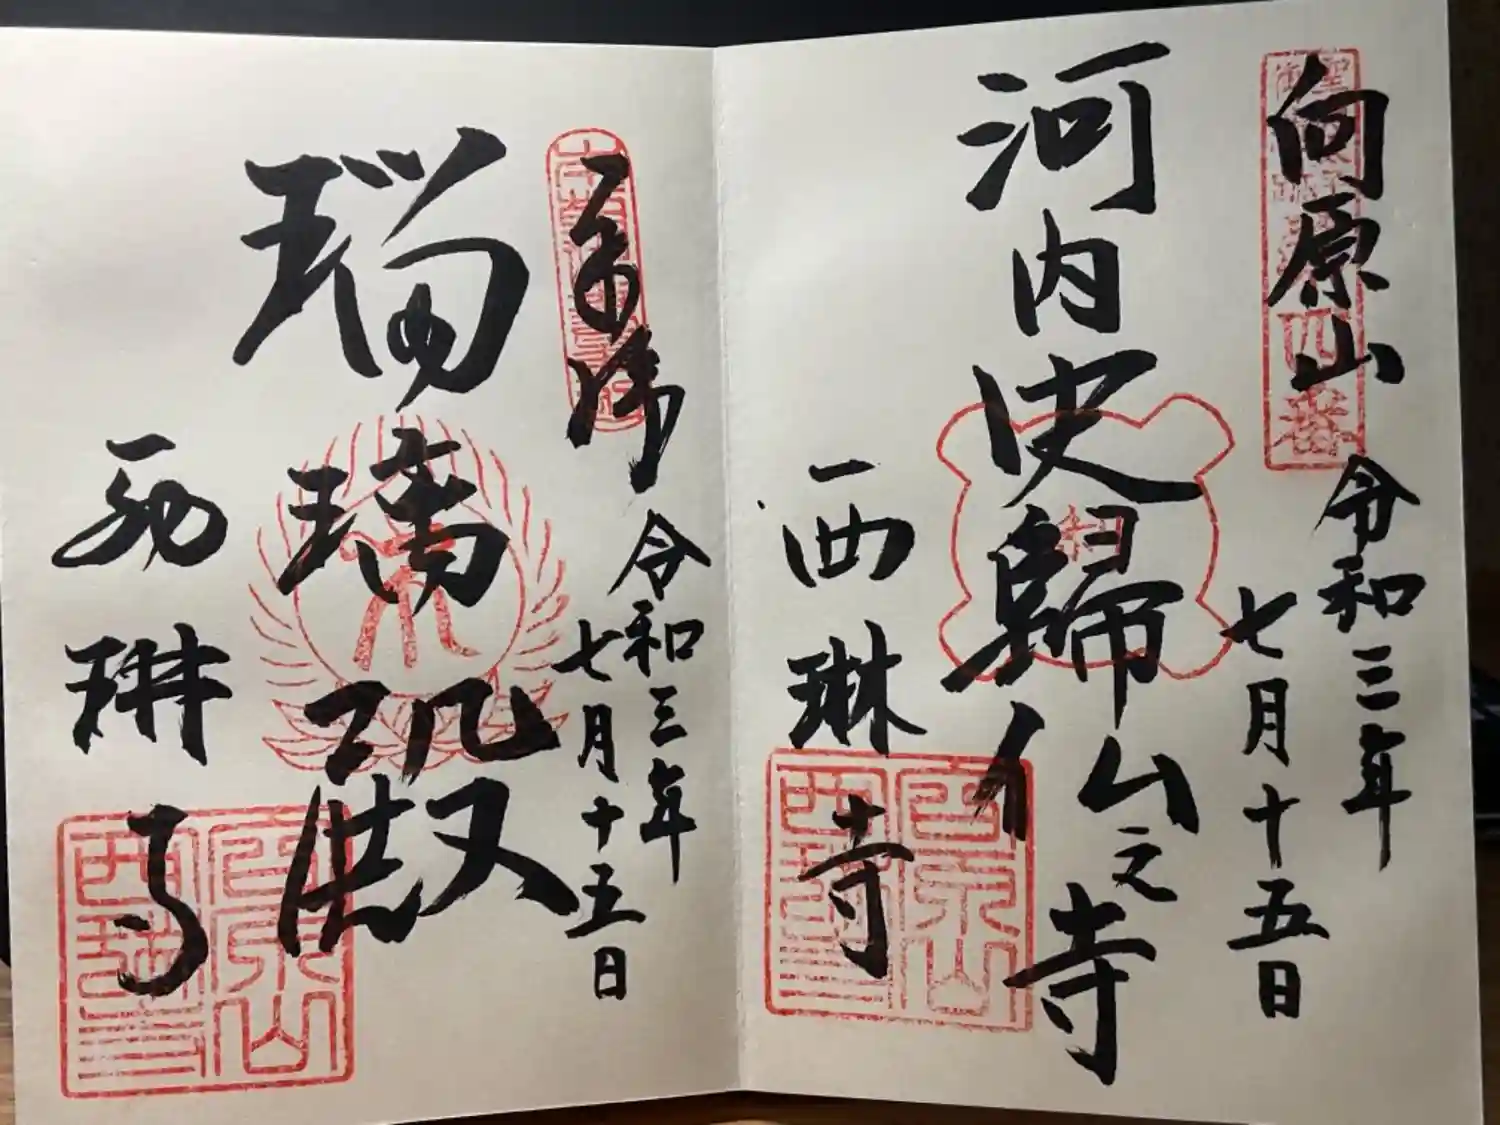 向原山
令和三年
七月十五日
河内史歸仏之寺
西琳寺
四番
令和三年
七月十五日
瑠璃殿
西琳寺